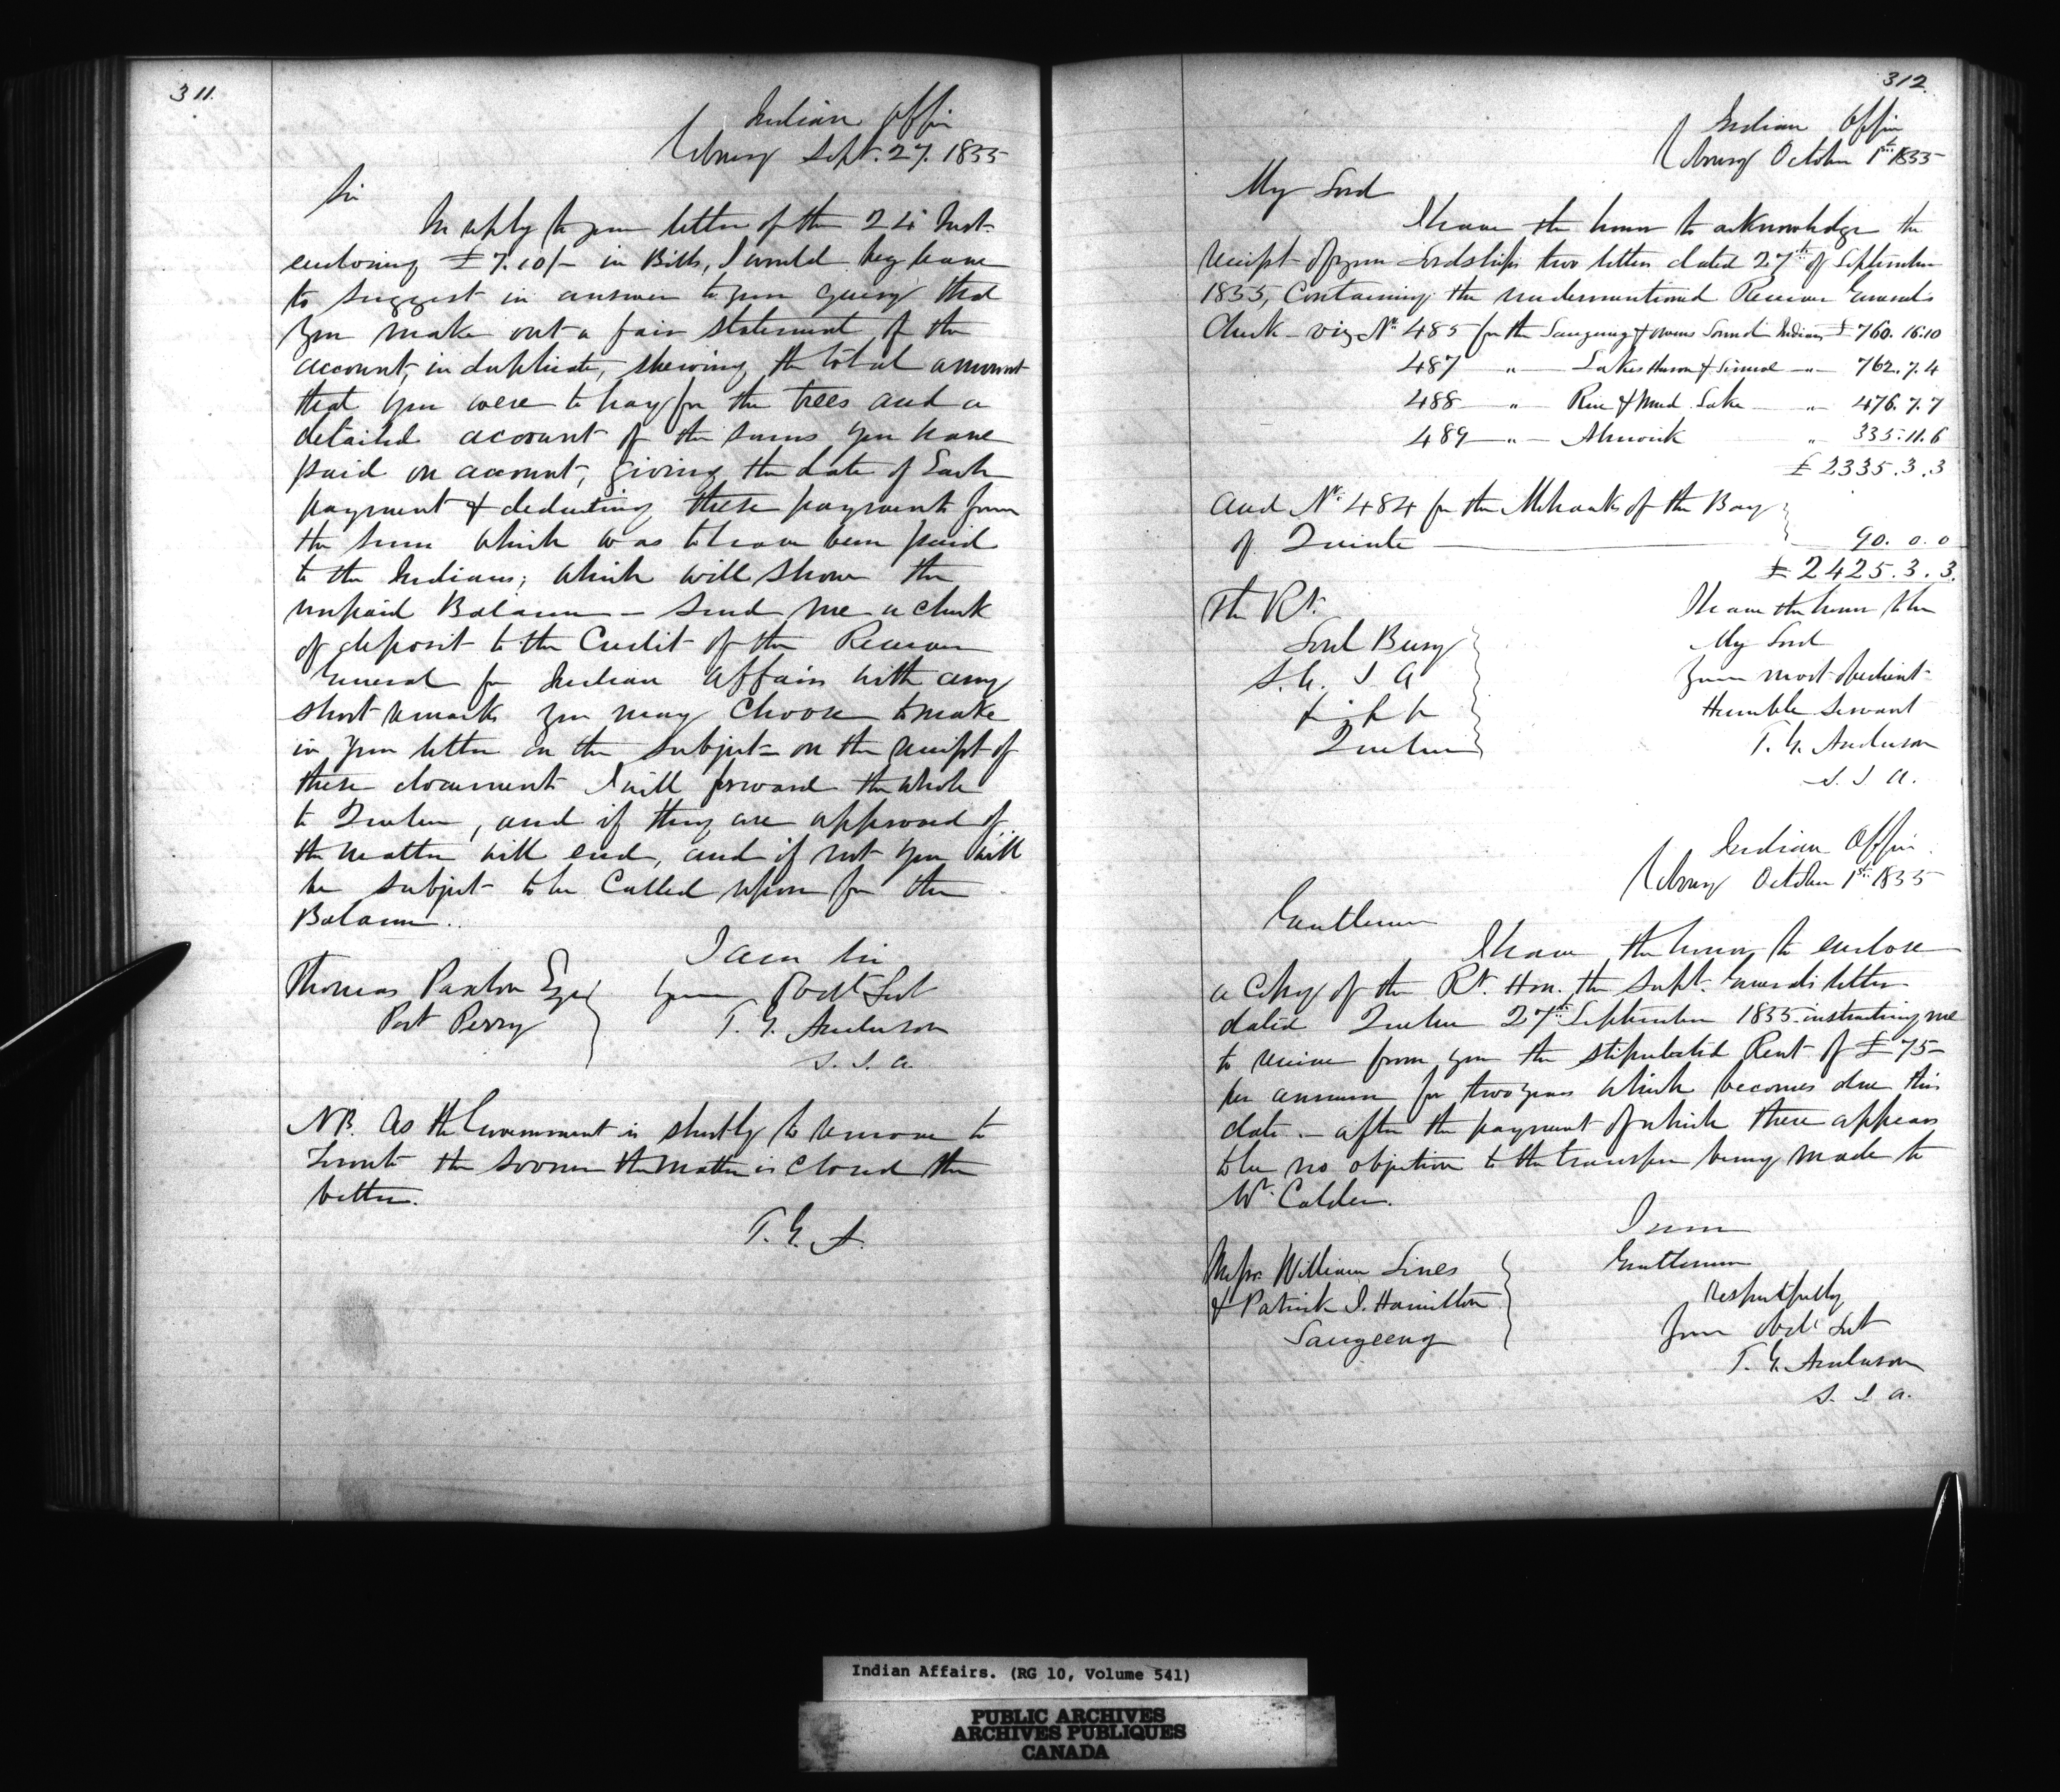 311.
Indian Office
Cobourg Sept. 27. 1855
Sir
In reply to your letter of the 24 Inst.
enclosing £7.10/- in Bills, I would beg leave
to suggest in answer to your query that
you make out a fair statement of the
account, in duplicate, shewing the total amount
that you were to pay for the trees and a
detailed account of the sums you have
paid on account, giving the date of Each
payment & deducting these payments from
the sum which was to have been paid
to the Indians; which will show the
unpaid Balance – send me a check
of deposit to the Credit of the Receiver
General for Indian Affairs with any
short remarks you may choose to make
in your letter on the subject – on the receipt of
these documents I will forward the whole
to Quebec, and if they are approved of
the matter will end, and if not you will
be subject to be Called upon for the
Balance.
I am Sir
Thomas Paxton Esqr Your Obdt Svt
Port Perry T. G. Anderson
S. I. A.
NB. As the Government is shortly to remove to
Toronto the sooner the matter is closed the
better.
T. G. A.
312.
Indian Office
Cobourg October 1st 1855
My Lord
I have the honor to acknowledge the
receipt of your Lordships two letters dated 27th of September
1855, Containing the undermentioned Receiver Generals
Check – viz Nr. 485 for the Saugeeng & Owens Sound Indians £760.16.10
487 " Lakes Huron & Simcoe " 762.7.4
488 " Rice & Mud Lake " 476.7.7
489 " Alnwick " 335.11.6
£2335.3.3
and Nr. 484 for the Mohawks of the Bay
of Quinte 90.0.0
£2425.3.3.
The Rt. I have the honor to be
Lord Bury My Lord
S. G. I A Your most obedient
&c &c &c Humble Servant
Quebec T. G. Anderson
S. I. A.
Indian Office
Cobourg October 1st 1855
Gentlemen
I have the honor to enclose
a Copy of the Rt. Hon. the Supt. Generals letter
dated Quebec 27th September 1855 instructing me
to receive from you the stipulated Rent of £75
per annum for two years which becomes due this
date – after the payment of which there appears
to be no objection to the transfer being made to
Mr. Calder.
I am
Messrs William Lines Gentlemen
& Patrick I. Hamilton Respectfully
Saugeeng Your Obdt Svt
T. G. Anderson
S. I. A.
Indian Affairs. (RG 10, Volume 541)
PUBLIC ARCHIVES
ARCHIVES PUBLIQUES
CANADA